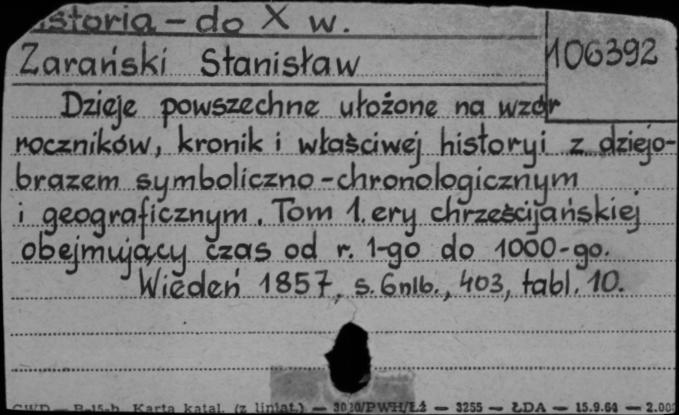 Historia - do X w.
106392
Zarański Stanisław
Dzieje powszechne ułożone na wzór
roczników, kronik i właściwej historyi z dziejo-
brazem symboliczno - chronologicznym
i geograficznym. Tom 1. ery chrześcijańskiej
obejmujący czas od r. 1-go do 1000-go.
Wiedeń 1857, s. 6 nlb., 403, tabl. 10.
GWD — B-15-b Karta katal. (z liniat.) — 3020/PWH/ŁŹ — 3255 — ŁDA — 15.9.64 — 2.000